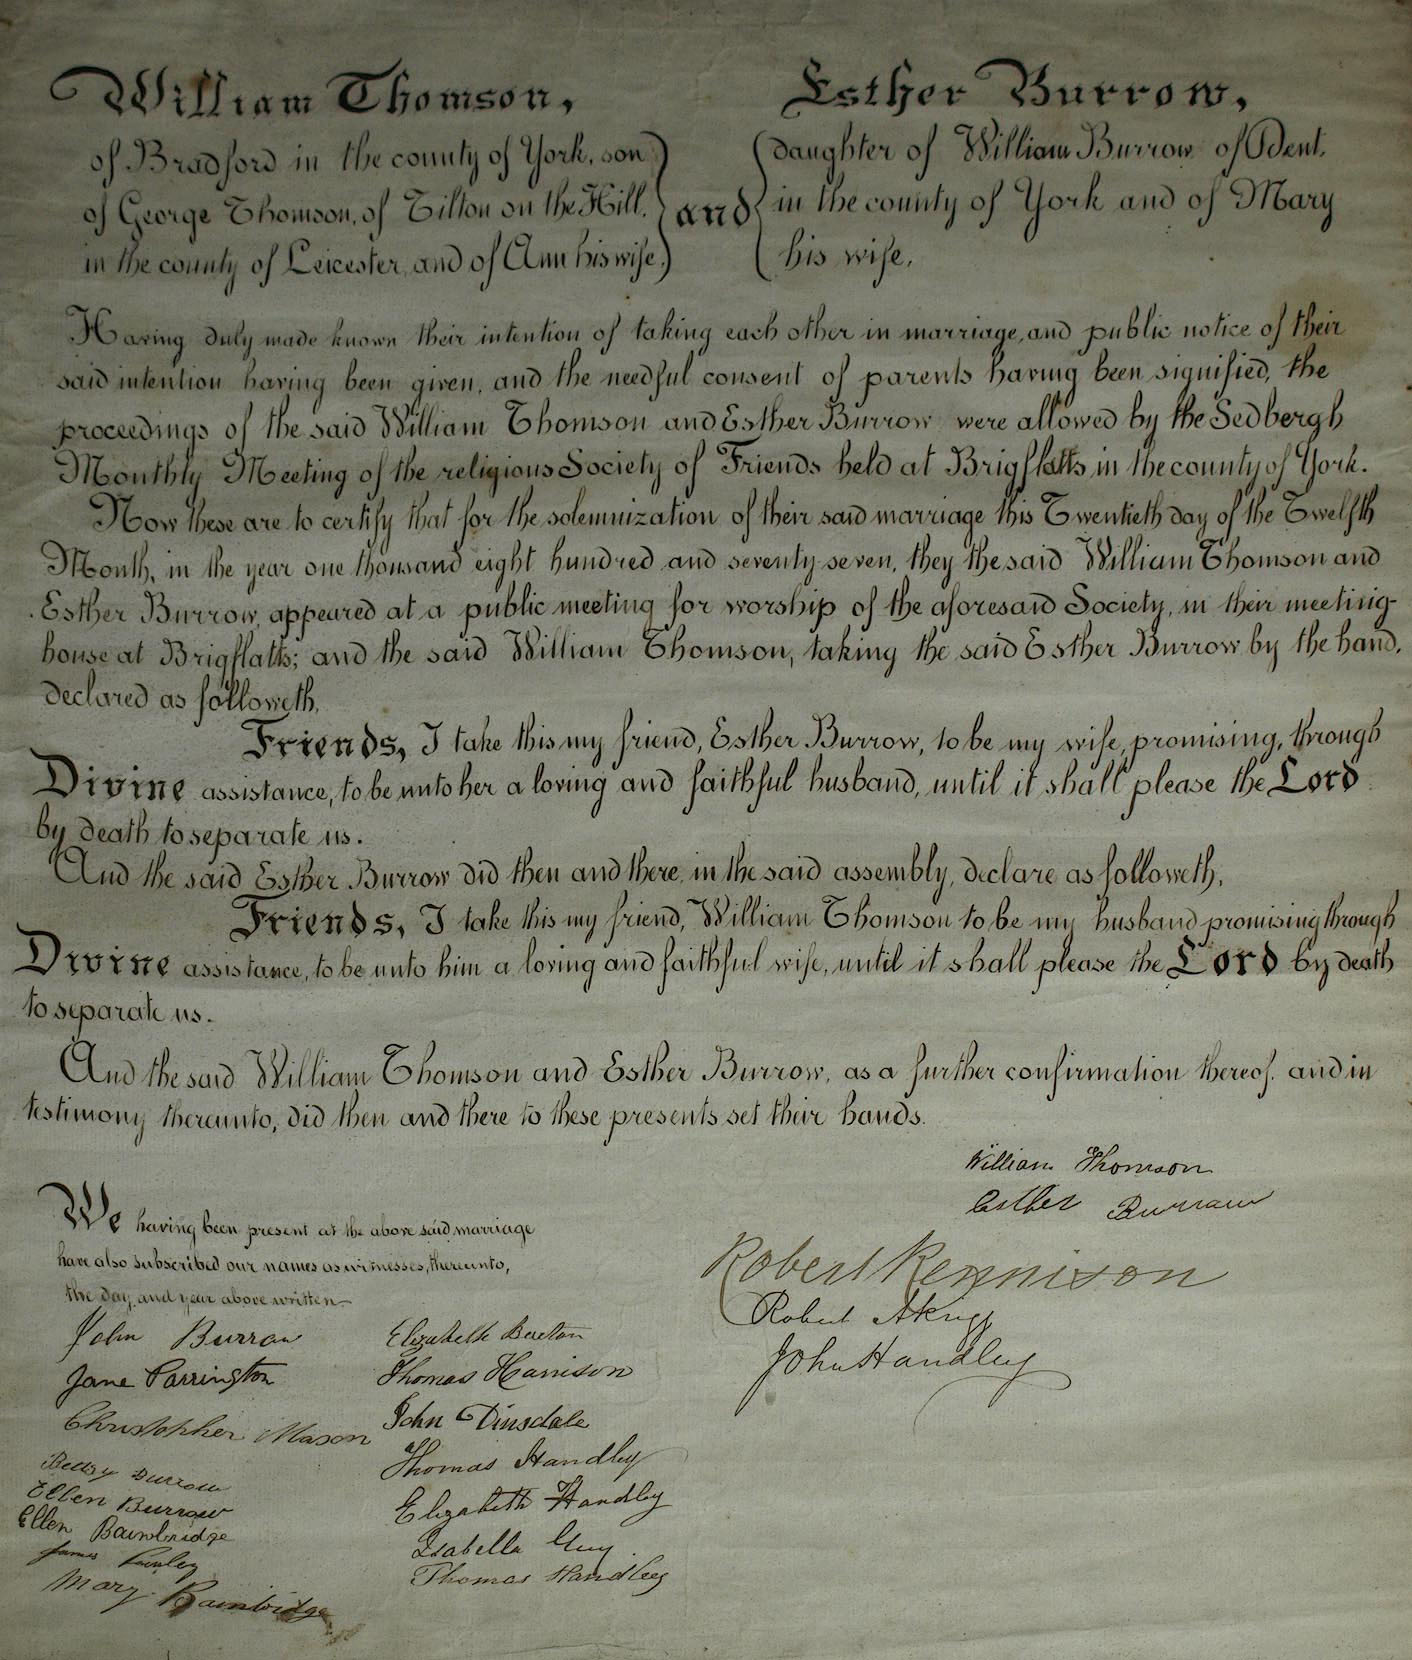 William Thomson,
of Bradford in the county of York, son
of George Thomson, of Tilton on the Hill,
in the county of Leicester, and of Ann his wife,
and
Esther Burrow,
daughter of William Burrow of Dent,
in the county of York and of Mary
his wife,
Having duly made known their intention of taking each other in marriage, and public notice of their
said intention having been given, and the needful consent of parents having been signified, the
proceedings of the said William Thomson and Esther Burrow were allowed by the Sedbergh
Monthly Meeting of the religious Society of Friends held at Brigflatts, in the county of York.
Now these are to certify that for the solemnization of their said marriage this Twentieth day of the Twelfth
Month, in the year one thousand eight hundred and seventy-seven, they the said William Thomson and
Esther Burrow, appeared at a public meeting for worship of the aforesaid Society, in their meeting-
house at Brigflatts; and the said William Thomson, taking the said Esther Burrow by the hand,
declared as followeth,
Friends, I take this my friend, Esther Burrow, to be my wife, promising, through
Divine assistance, to be unto her a loving and faithful husband, until it shall please the Lord
by death to separate us.
And the said Esther Burrow did then and there, in the said assembly, declare as followeth,
Friends, I take this my friend, William Thomson to be my husband promising through
Divine assistance, to be unto him a loving and faithful wife, until it shall please the Lord by death
to separate us.
And the said William Thomson and Esther Burrow, as a further confirmation thereof, and in
testimony thereunto, did then and there to these presents set their hands.
William Thomson
Esther Burrow
We having been present at the above said marriage
have also subscribed our names as witnesses, thereunto,
the day, and year above written
John Burrow
Jane Parrington
Christopher Mason
Betsy Burrow
Ellen Burrow
Ellen Bainbridge
James
Mary Bainbridge
Elizabeth
Thomas Harrison
John Dinsdale
Thomas Handley
Elizabeth Handley
Isabella Guy
Thomas Handley
Robert Rennison
Robert Akrigg
John Handley